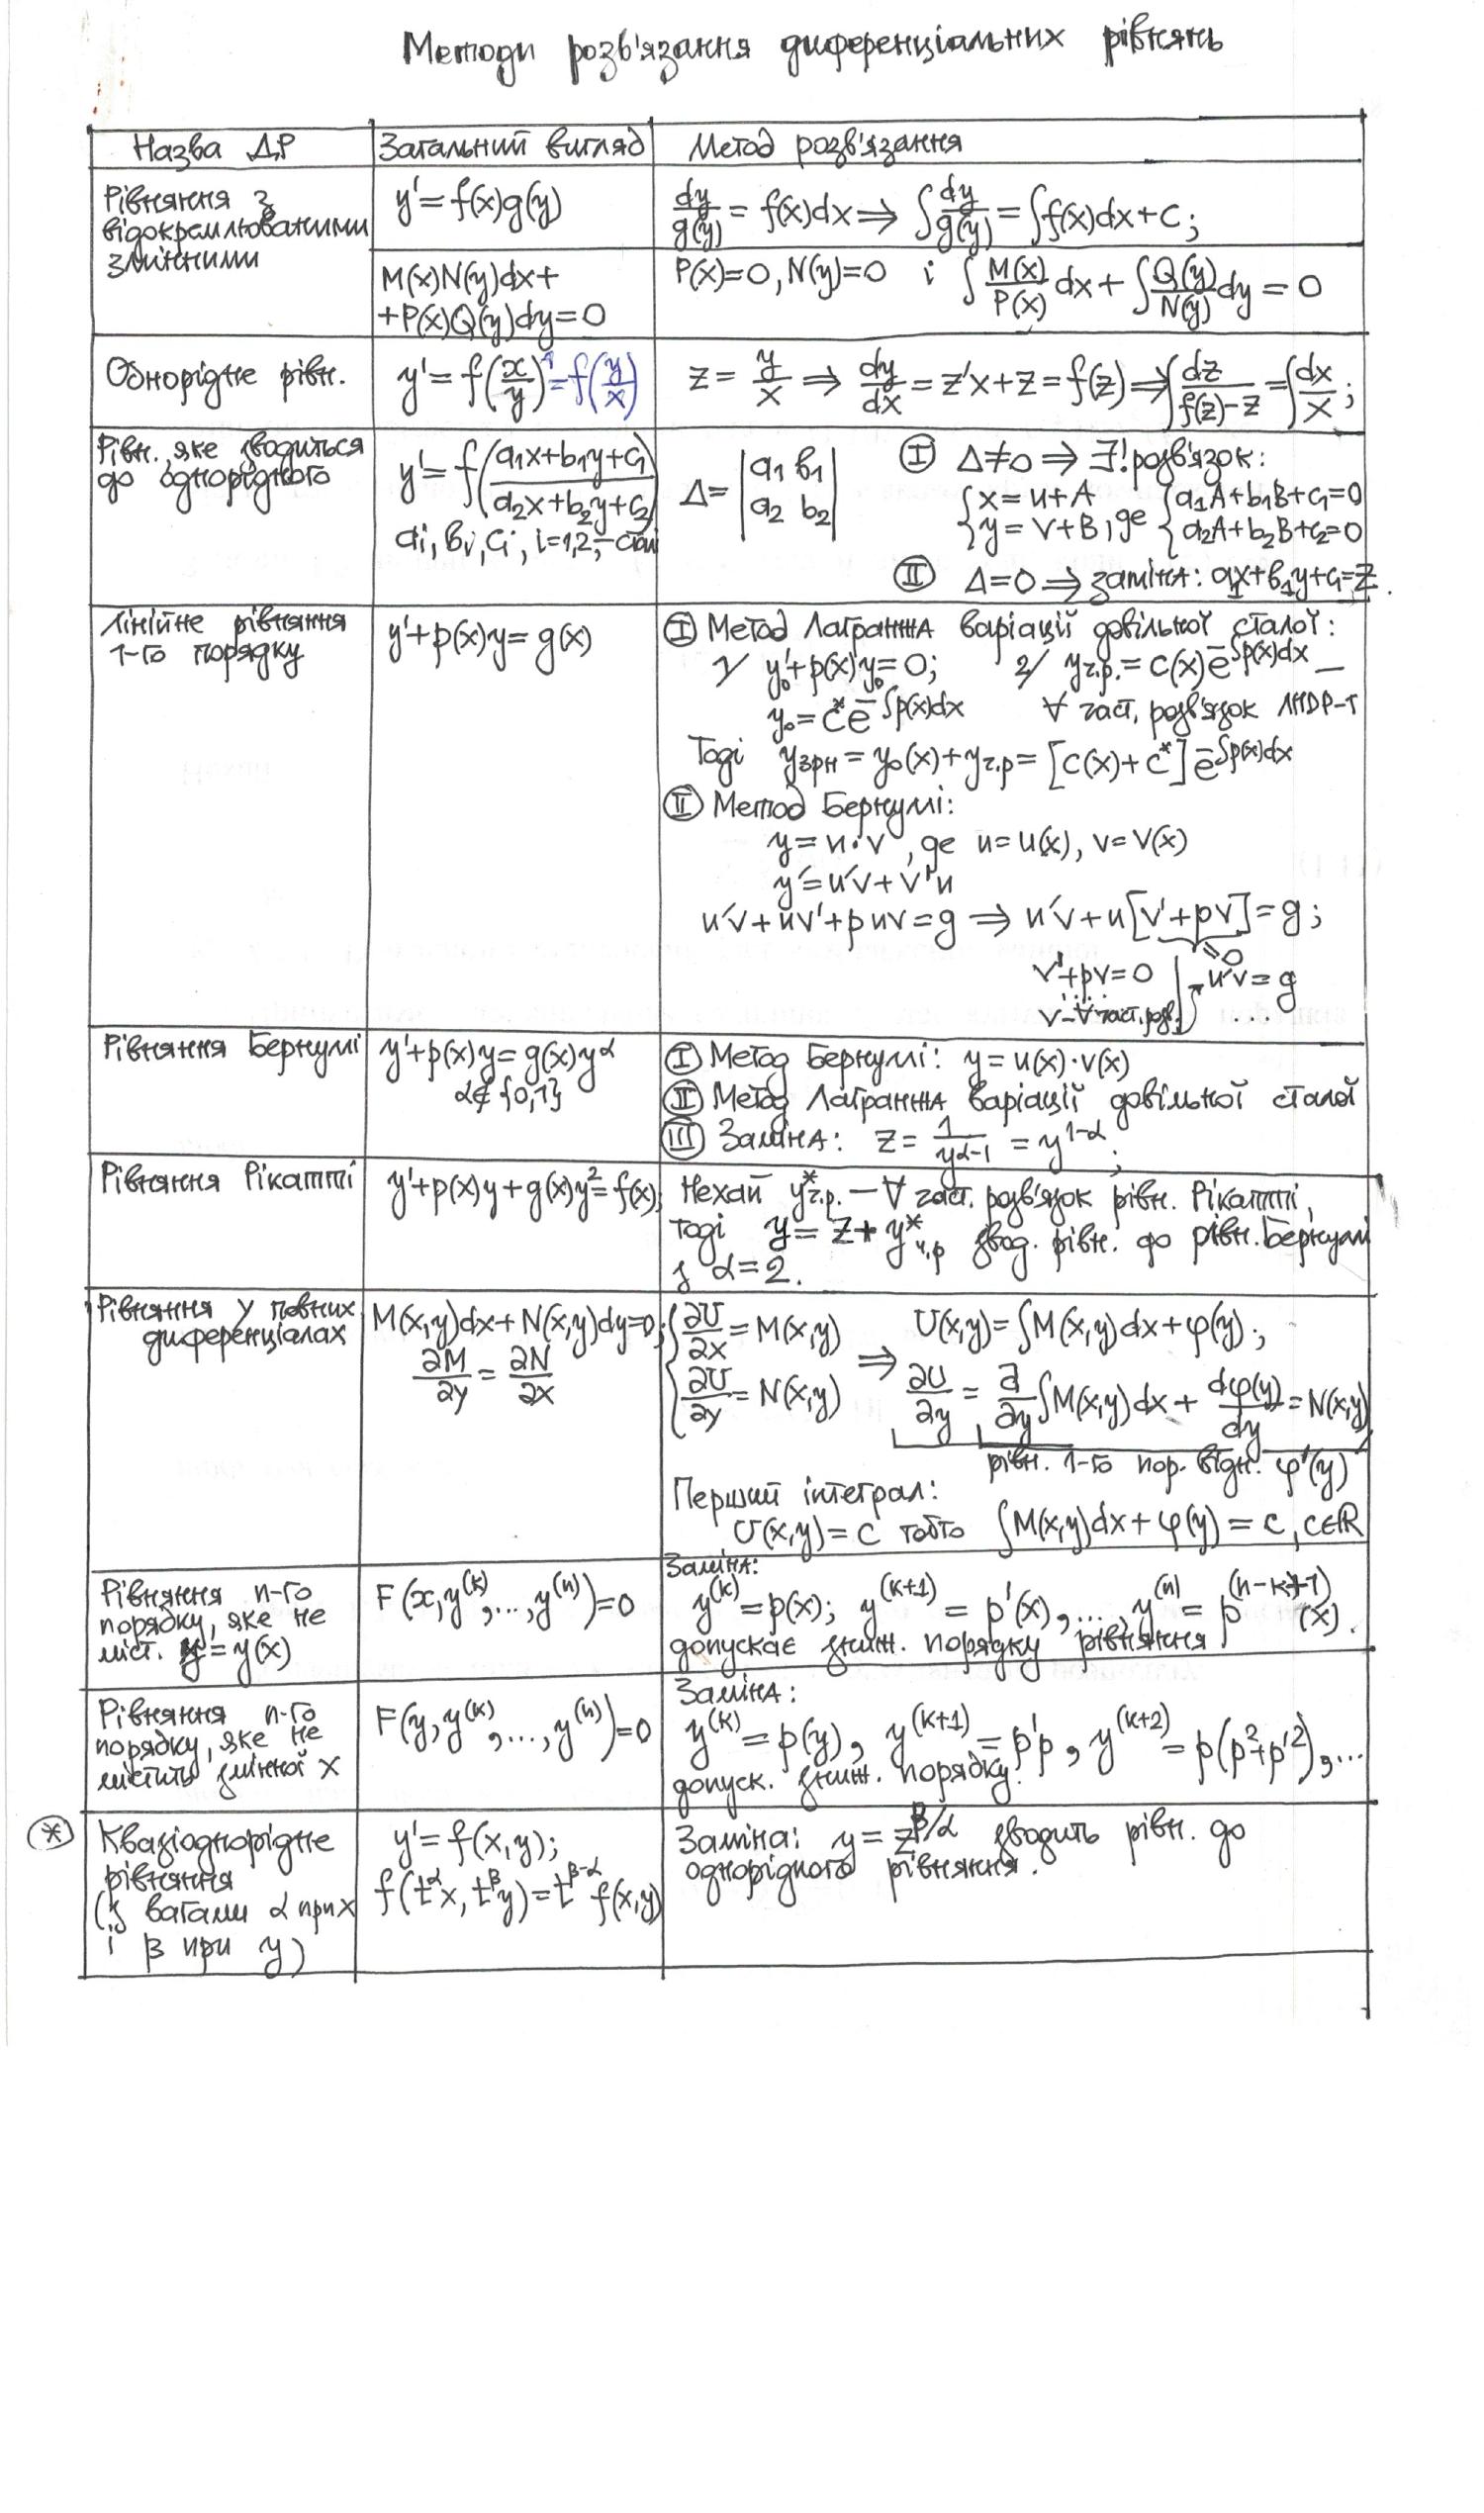 Методи розв'язання диференціальних рівнянь
Назва ДР
Загальний вигляд
Метод розв'язання
Рівняння з
відокремлюваними
змінними
y' = f(x)g(y)
dy/g(y) = f(x)dx ⇒ ∫dy/g(y) = ∫f(x)dx + C;
M(x)N(y)dx +
+P(x)Q(y)dy = 0
P(x)=0, N(y)=0 і ∫M(x)/P(x) dx + ∫Q(y)/N(y) dy = 0
Однорідне рівн.
y' = f(x/y) = f(y/x)
z = y/x ⇒ dy/dx = z'x + z = f(z) ⇒ ∫dz/(f(z)-z) = ∫dx/x;
Рівн., яке зводиться
до однорідного
y' = f((a₁x+b₁y+c₁)/(a₂x+b₂y+c₂))
aᵢ, bᵢ, cᵢ, i=1,2, – сталі
Δ = |a₁ b₁|
|a₂ b₂|
Ⓘ Δ≠0 ⇒ ∃! розв'язок:
{x = u+A
{y = v+B, де {a₁A+b₁B+c₁=0
{a₂A+b₂B+c₂=0
Ⅱ Δ=0 ⇒ заміна: a₁x+b₁y+c₁=z.
Лінійне рівняння
1-го порядку
y'+p(x)y = g(x)
Ⓘ Метод Лагранжа варіації довільної сталої:
1/ y₀'+p(x)y₀=0; 2/ yч.р. = c(x)e^{-∫p(x)dx} –
y₀ = c*e^{-∫p(x)dx} ∀ част. розв'язок ЛНДР-Т
Тоді yзрн = y₀(x)+yч.р = [c(x)+c*]e^{-∫p(x)dx}
Ⅱ Метод Бернуллі:
y = u·v, де u=u(x), v=v(x)
y' = u'v + v'u
u'v+uv'+puv = g ⇒ u'v+u[v'+pv] = g;
=0
v'+pv=0 u'v = g
v – ∀ част. розв. ...
Рівняння Бернуллі
y'+p(x)y = g(x)y^α
α∉{0,1}
Ⓘ Метод Бернуллі: y = u(x)·v(x)
Ⅱ Метод Лагранжа варіації довільної сталої
Ⅲ Заміна: z = 1/y^{α-1} = y^{1-α};
Рівняння Рікатті
y'+p(x)y+g(x)y² = f(x);
Нехай y*ч.р. – ∀ част. розв'язок рівн. Рікатті,
тоді y = z + y*ч.р звод. рівн. до рівн. Бернуллі
з α=2.
Рівняння у повних
диференціалах
M(x,y)dx+N(x,y)dy=0;
∂M/∂y = ∂N/∂x
{∂U/∂x = M(x,y)
{∂U/∂y = N(x,y)
⇒ U(x,y) = ∫M(x,y)dx + φ(y);
∂U/∂y = ∂/∂y ∫M(x,y)dx + dφ(y)/dy = N(x,y)
рівн. 1-го пор. відн. φ'(y)
Перший інтеграл:
U(x,y) = C тобто ∫M(x,y)dx+φ(y) = c, c∈R
Рівняння n-го
порядку, яке не
міст. y = y(x)
F(x,y^(k),...,y^(n))=0
Заміна:
y^(k) = p(x); y^(k+1) = p'(x),..., y^(n) = p^(n-k+1)(x).
допускає зниж. порядку рівняння
Рівняння n-го
порядку, яке не
містить змінної x
F(y,y^(k),...,y^(n))=0
Заміна:
y^(k) = p(y), y^(k+1) = p'p, y^(k+2) = p(p²+p'²),...
допуск. зниж. порядку.
(*)
Квазіоднорідне
рівняння
(з вагами α при x
і β при y)
y' = f(x,y);
f(t^α x, t^β y) = t^{β-α} f(x,y)
Заміна: y = z^{β/α} зводить рівн. до
однорідного рівняння.